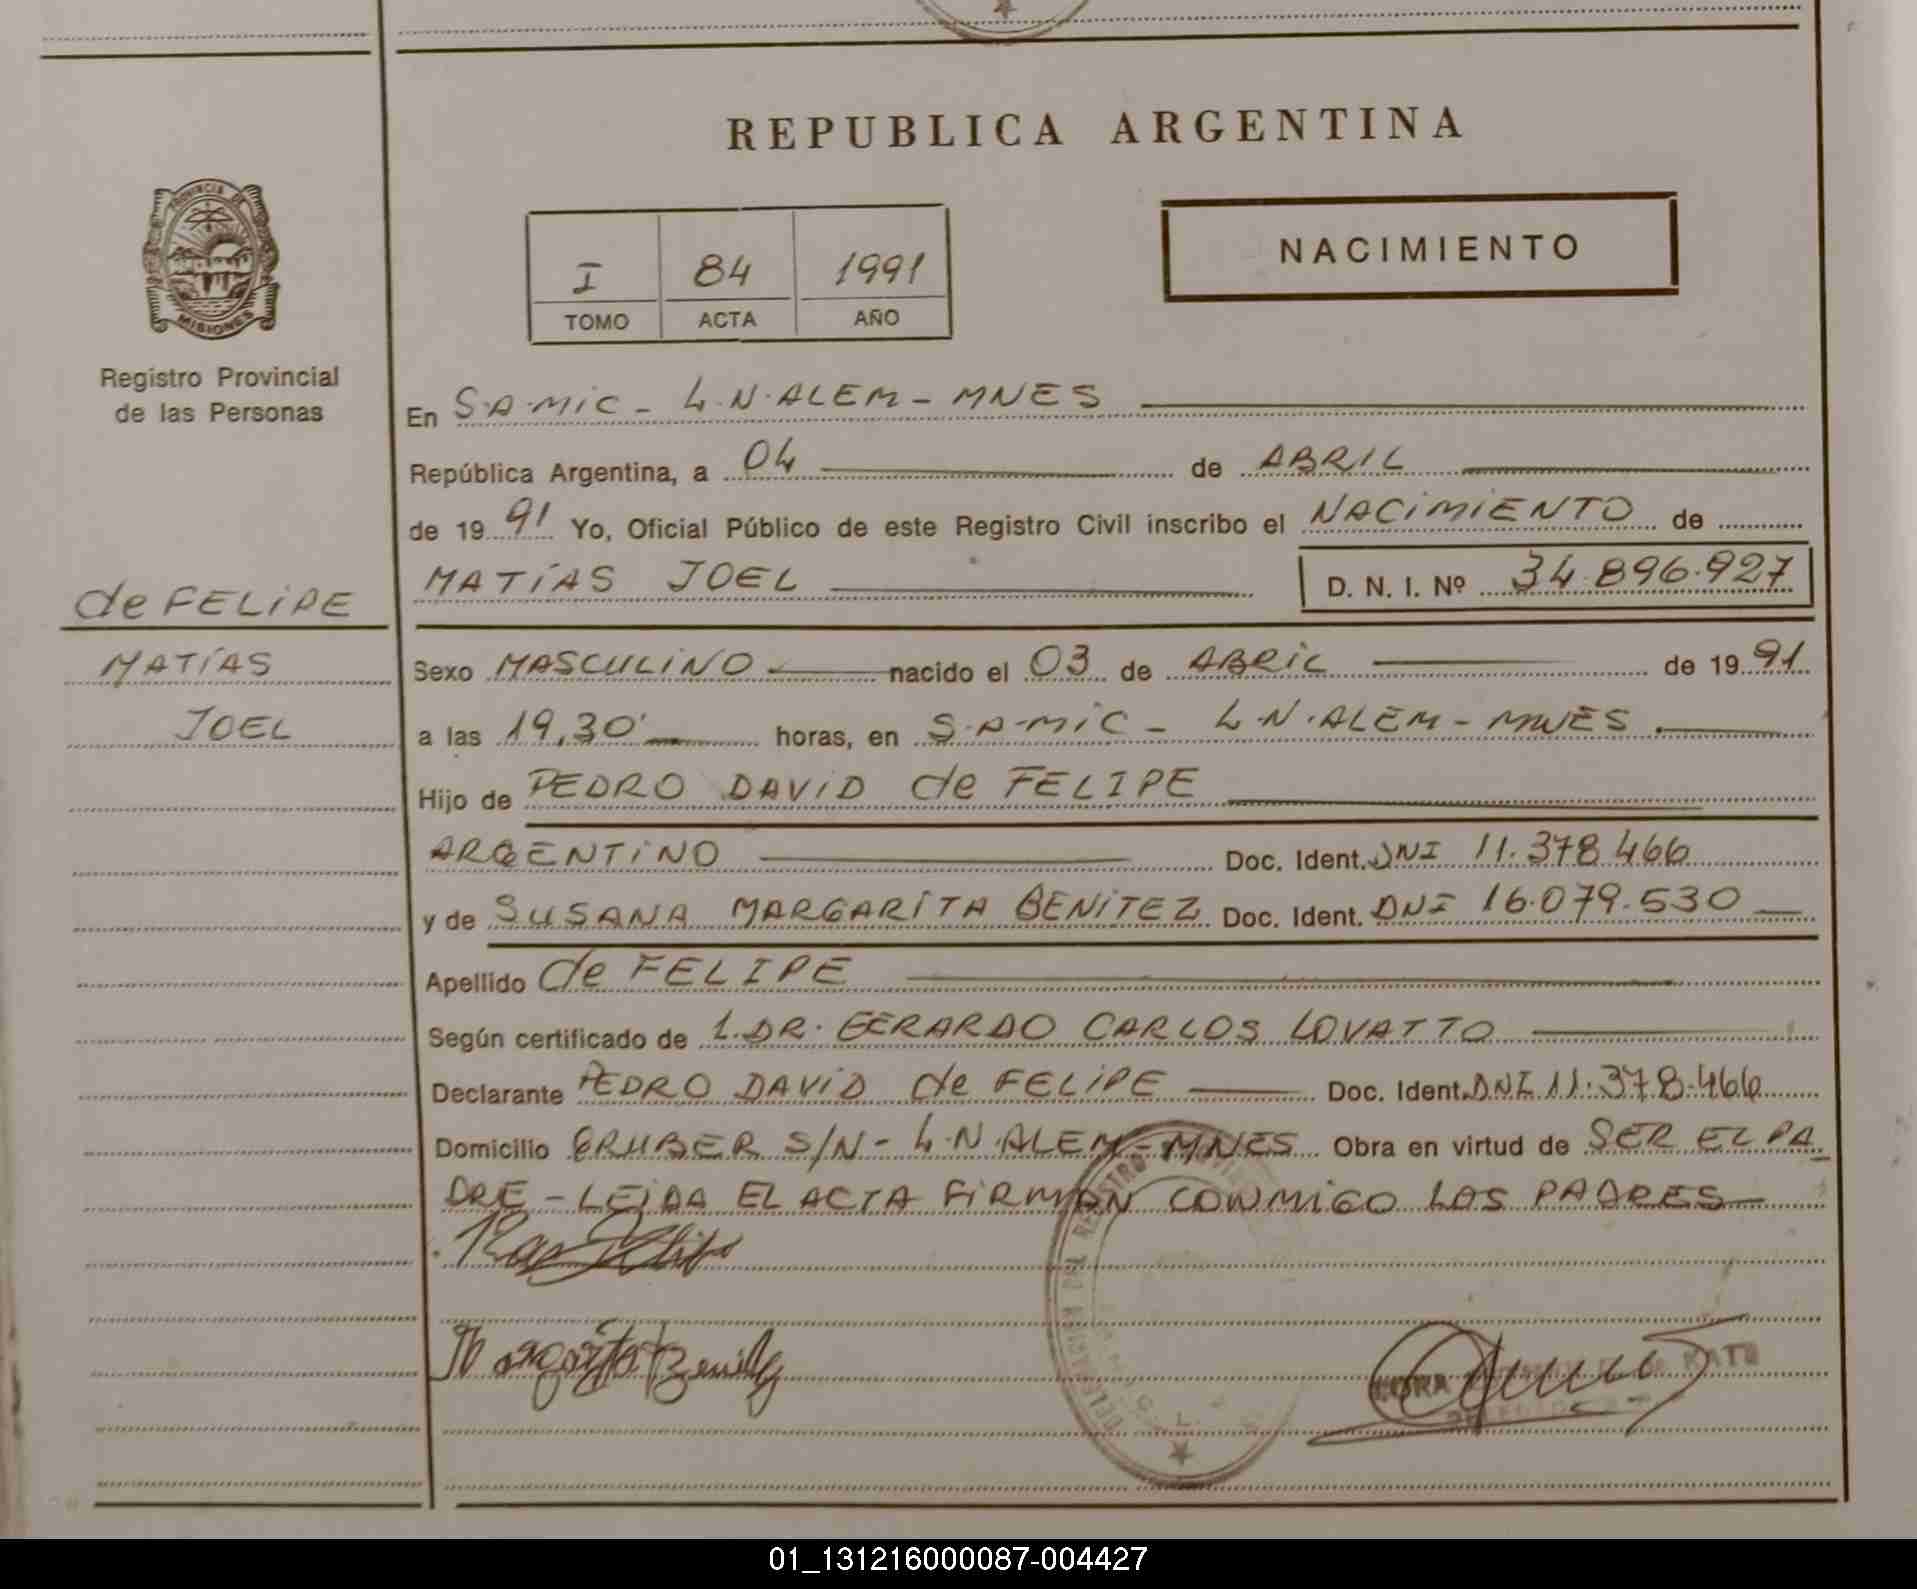 REPUBLICA ARGENTINA
PROVINCIA DE
MISIONES
Registro Provincial
de las Personas
I 84 1991
TOMO ACTA AÑO
NACIMIENTO
En S.A.MIC - L.N.ALEM - MNES
República Argentina, a 04 de ABRIL
de 19 91 Yo, Oficial Público de este Registro Civil inscribo el NACIMIENTO de
MATÍAS JOEL D. N. I. Nº 34.896.927
de FELIPE
MATÍAS
JOEL
Sexo MASCULINO nacido el 03 de ABRIL de 19 91
a las 19,30' horas, en S.A-MIC - L.N.ALEM - MNES.
Hijo de PEDRO DAVID de FELIPE
ARGENTINO Doc. Ident. DNI 11.378.466
y de SUSANA MARGARITA BENITEZ Doc. Ident. DNI 16.079.530
Apellido de FELIPE
Según certificado de 1.DR. GERARDO CARLOS LOVATTO
Declarante PEDRO DAVID de FELIPE Doc. Ident. DNI 11.378.466
Domicilio GRUBER S/N - L.N.ALEM - MNES Obra en virtud de SER EL PA
DRE - LEIDA EL ACTA FIRMAN CONMIGO LOS PADRES
DELEGACION DEL REGISTRO
Margarita Benitez
01_131216000087-004427